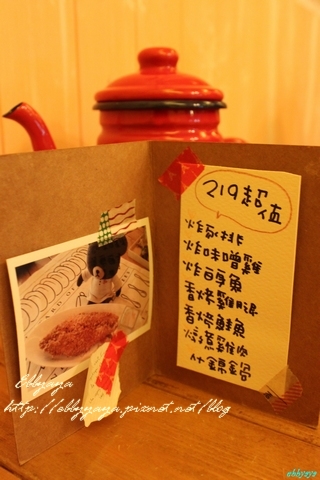 219超值
炸豚排
炸味噌雞
炸白身魚
香烤雞腿
香烤鯖魚
燒煮雞肉
什錦鍋
ebbyaya
http://ebbyyaya.pixnet.net/blog
ebbyaya